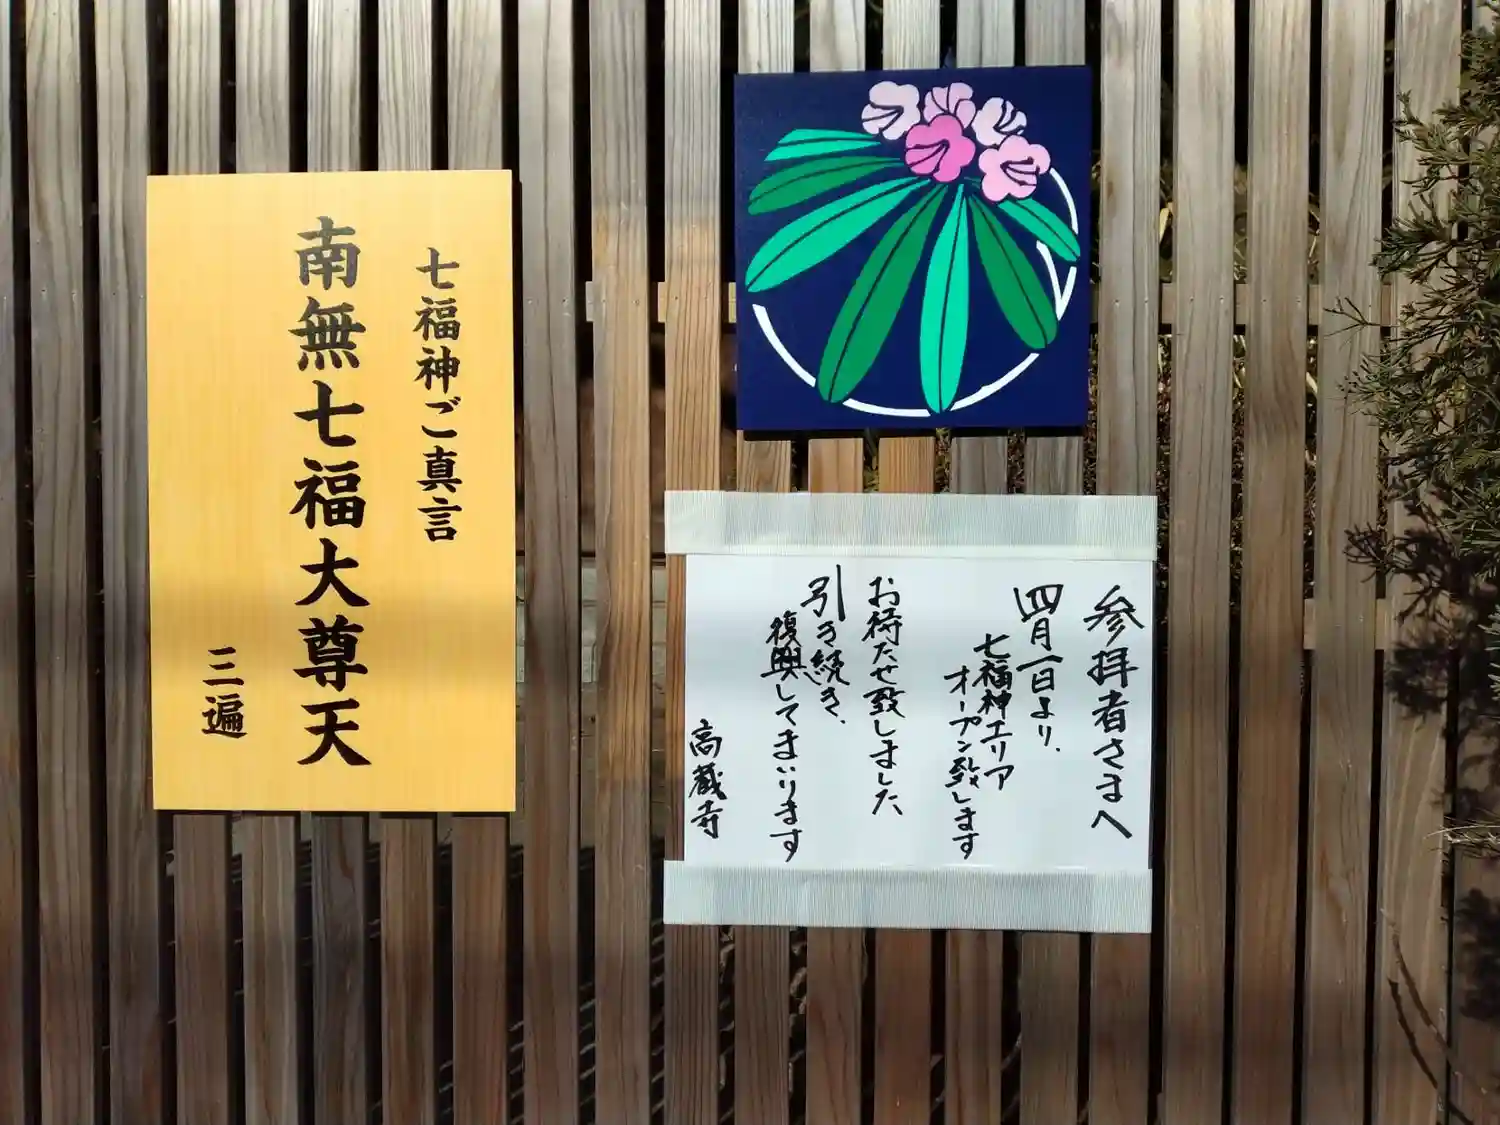 七福神ご真言
南無七福大尊天
三遍
参拝者さまへ
四月一日より、
七福神エリア
オープン致します
お待たせ致しました
引き続き、
復興してまいります
高蔵寺